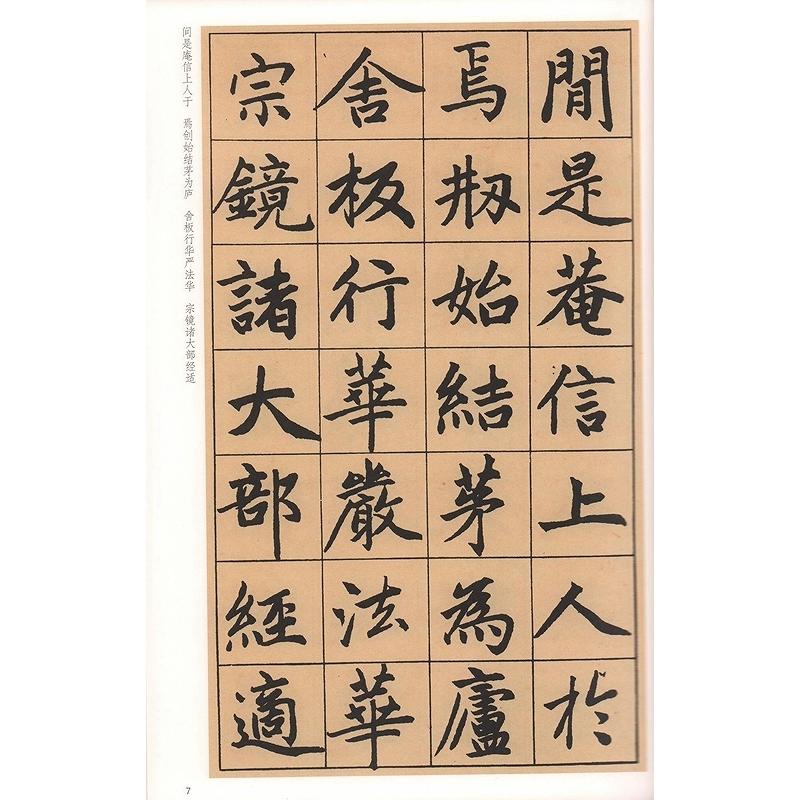 閒是菴信上人於
焉刱始結茅為廬
舍板行華嚴法華
宗鏡諸大部經適
问是庵信上人于 焉创始结茅为庐 舍板行华严法华 宗镜诸大部经适
7